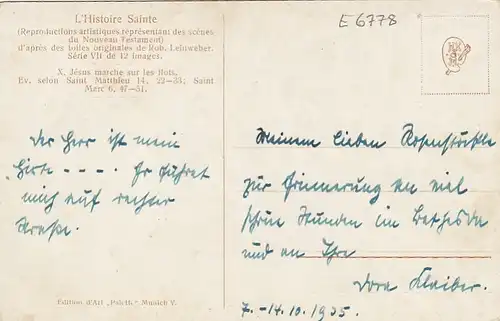 L'Histoire Sainte
(Reproductions artistiques représentant des scènes
du Nouveau Testament)
d'après des toiles originales de Rob. Leinweber.
Série VII de 12 images.
X. Jésus marche sur les flots.
Ev. selon Saint Matthieu 14, 22—33; Saint
Marc 6, 47—51.
E 6778
HK
Der Herr ist mein
Hirte - - - - Er führet
mich auf rechter
Straße.
Meinem lieben Rosenstöckle
zur Erinnerung an viel
schöne Stunden im Bethesda
und an Ihre
Dora Klaiber.
7.-14.10.1935.
Edition d'Art „Poleth“ Munich V.